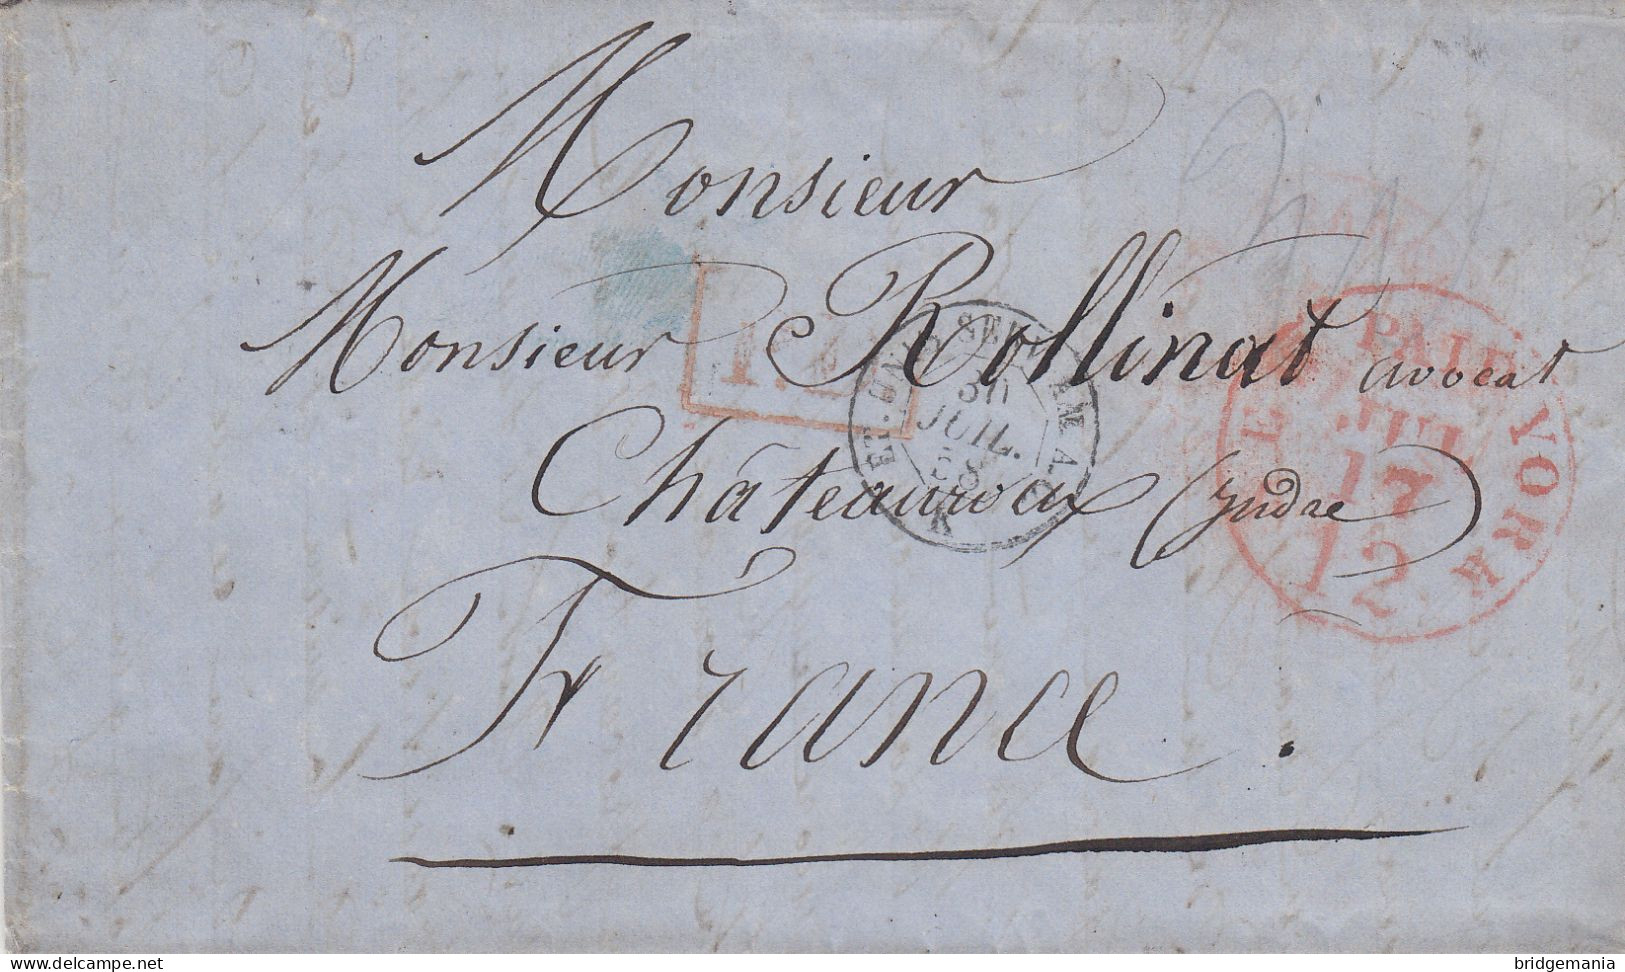 Monsieur
Monsieur Rollinat avocat
Châteauroux (Indre)
France.
ET. UNIS SERV. AM. A.
30
JUIL.
58
K
PAID
YORK
JUL
17
12
bridgemania